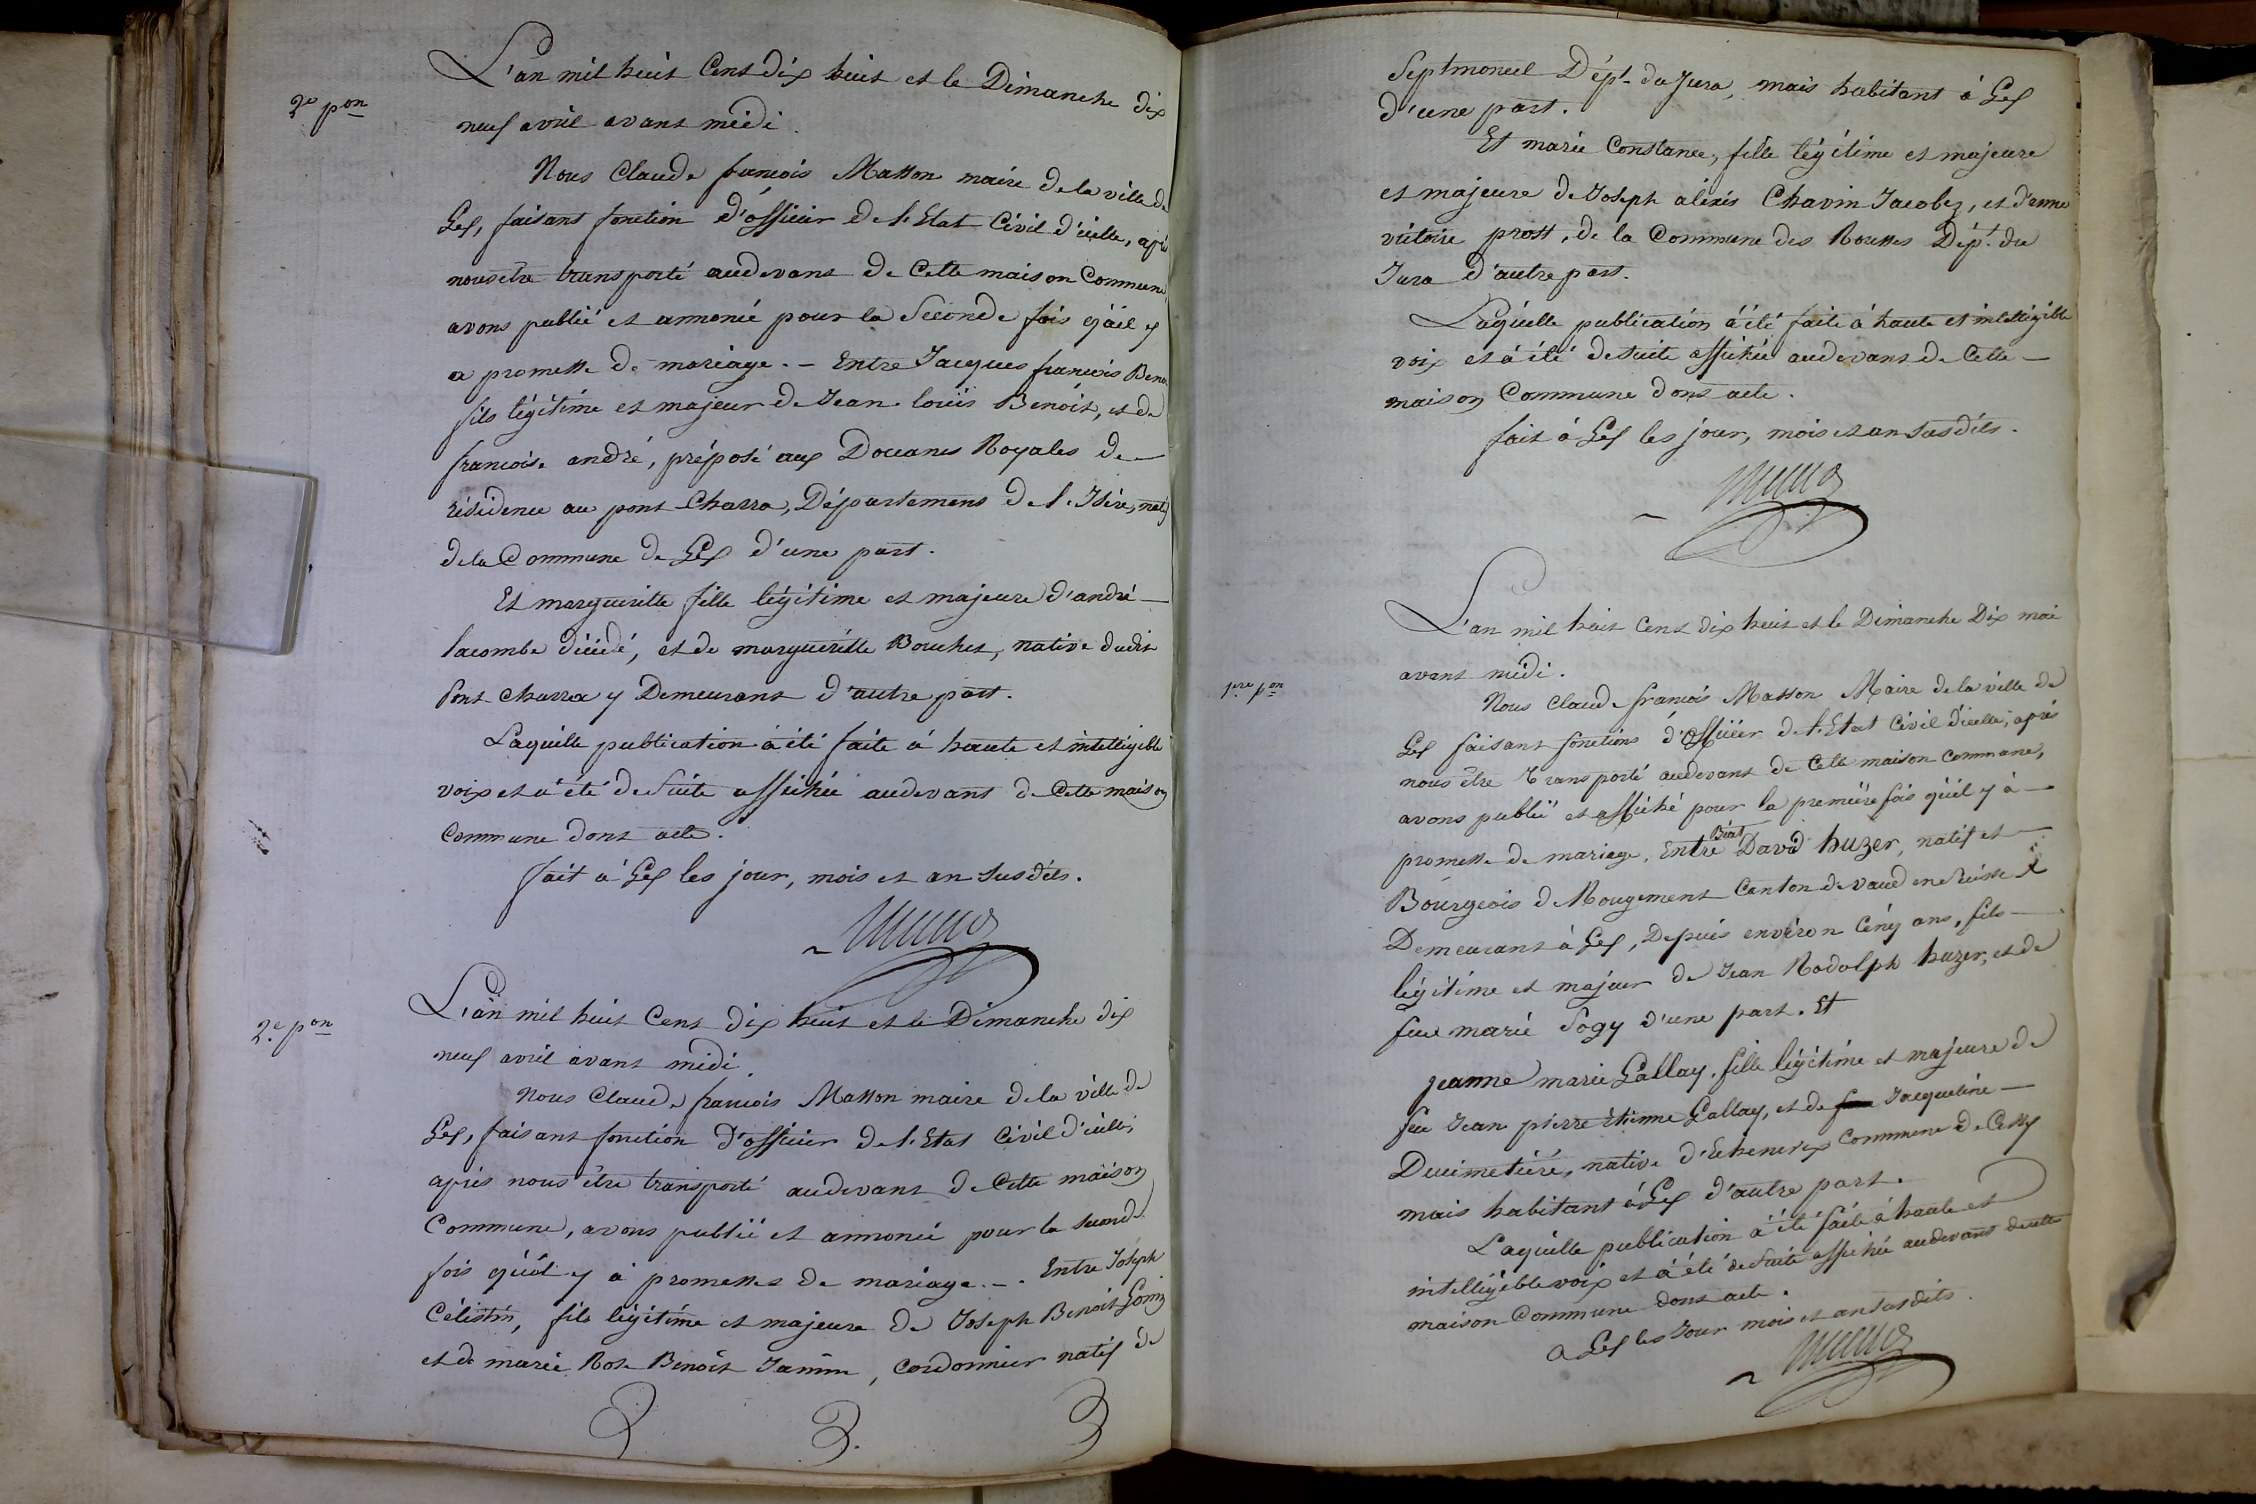 2e pon
L'an mil huit Cent dix huit et le Dimanche dix
neuf avril avant midi.
Nous Claude francois Masson maire de la ville de
Gex, faisant fonction d'officier de l'Etat Civil d'icelle, apès
nous être transporté audevant de Cette maison Commune,
avons publié et annoncé pour la Seconde fois qu'il y
a promesse de mariage. - Entre Jacques francois Benoi
fils légitime et majeur de Jean louis Benoit, et de
francoise andré, préposé aux Douanes Royales de
résidence au pont Charra, Département de l'Isère, natif
de la Commune de Gex d'une part.
Et margueritte fille légitime et majeure d'andré
lacombe décédé, et de margueritte Bouchet, native dudit
Pont charra y Demeurant d'autre part.
Laquelle publication à été faite à haute et intelligible
voix et à été de Suite affichée audevant de Cette maison
Commune dont acte.
fait à Gex les jour, mois et an Susdits.
2e pon
L'an mil huit Cent dix huit et le Dimanche dix
neuf avril avant midi.
Nous Claude francois Masson maire de la ville de
Gex, faisant fonction d'officier de l'Etat Civil d'icelle,
après nous être transporté audevant de Cette maison
Commune, avons publié et annoncé pour la seconde
fois qu'il y à promesses de mariage. - . Entre Joseph
Célestin, fils légitime et majeure de Joseph Benoit Gonin
et de marie Rose Benoit Janin, Cordonnier natif de
Septmoncel Dépt. du Jura, mais habitant à Gex
d'une part.
Et marie Constance, fille légitime et majeure
et majeure de Joseph alexis Chavin Jacobez, et d'anne
victoire prost, de la Commune des Rousses Dépt. du
Jura d'autre part.
Laquelle publication à été faite à haute et intelligible
voix et à été desuite affichée audevant de Cette
maison Commune dont acte.
fait à Gex les jour, mois et an susdits.
1ere pon
L'an mil huit Cent dix huit et le Dimanche Dix mai
avant midi.
Nous Claude francois Masson Maire de la ville de
Gex faisant fonctions d'officier de l'Etat Civil d'icelle, après
nous être Transporté audevant de Cette maison Commune,
avons publié et affiché pour la première fois qu'il y à
promesse de mariage, Entre Béat David huzer, natif et
Bourgeois de Rougement Canton de vaud en Suisse
Demeurant à Gex, Depuis environ Cinq ans, fils
légitime et majeur de Jean Rodolph huzer, et de
feue marie Sogy d'une part. Et
jeanne marie Gallay, fille légitime et majeure de
feu Jean pierre étienne Gallay, et de feue Jacqueline
Ducimetière, native d'Echenevex Commune de Cessy
mais habitant à Gex d'autre part.
Laquelle publication à été faite à haute et
intelligible voix et à été de Suite affichée audevant de cette
maison Commune dont acte.
a Gex les Jour mois et an susdits.